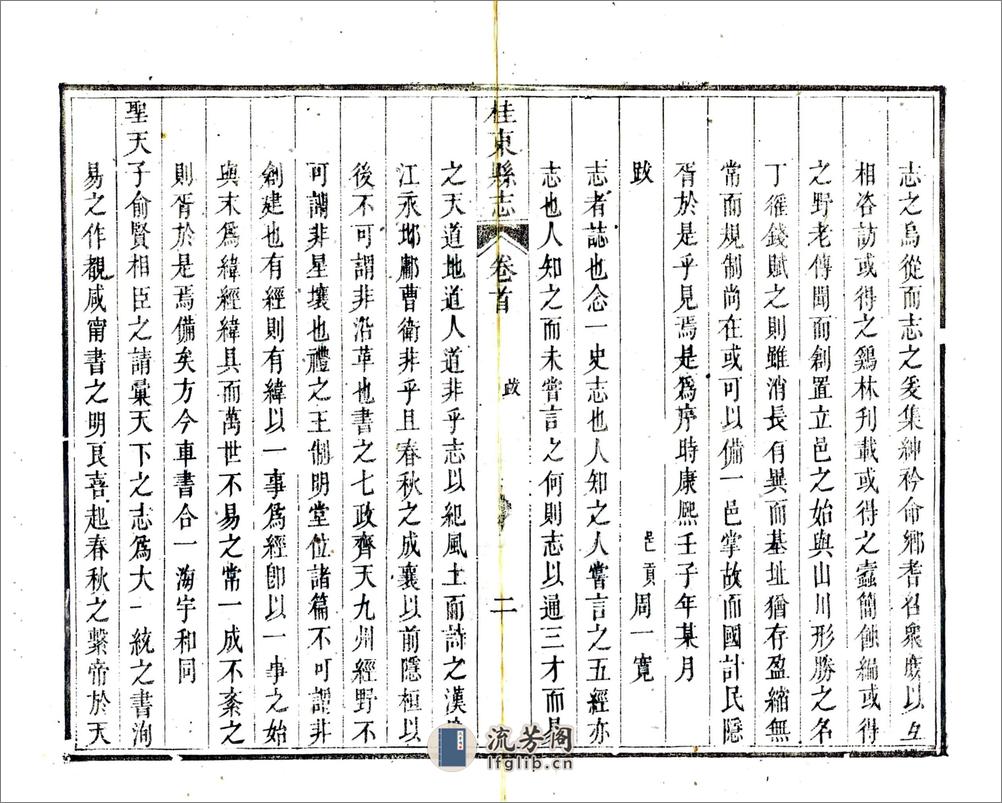 志之烏從而志之爰集紳衿命鄉耆名衆庶以互
相咨訪或得之鷄林刋載或得之蠧簡蝕編或得
之野老傳聞而創置立邑之始與山川形勝之名
丁徭錢賦之則雖消長有異而基址猶存盈縮無
常而規制尚在或可以備一邑掌故而國計民隱
胥於是乎見焉是爲序時康熙壬子年某月
跋
邑貢周一寛
志者誌也念一史志也人知之人嘗言之五經亦
志也人知之而未嘗言之何則志以通三才而易
桂東縣志
卷首
跋
二
之天道地道人道非乎志以紀風土而詩之漢
江永邶鄘曹衛非乎且春秋之成襄以前隱桓以
後不可謂非沿革也書之七政齊天九州經野不
可謂非星壤也禮之王制明堂位諸篇不可謂非
創建也有經則有緯以一事爲經卽以一事之始
與末爲緯經緯具而萬世不易之常一成不紊之
則胥於是焉備矣方今車書合一海宇和同
聖天子俞賢相臣之請彙天下之志爲大一統之書洵
易之作覩咸甯書之明良喜起春秋之繫帝於天
流芳阁
lfglib.cn